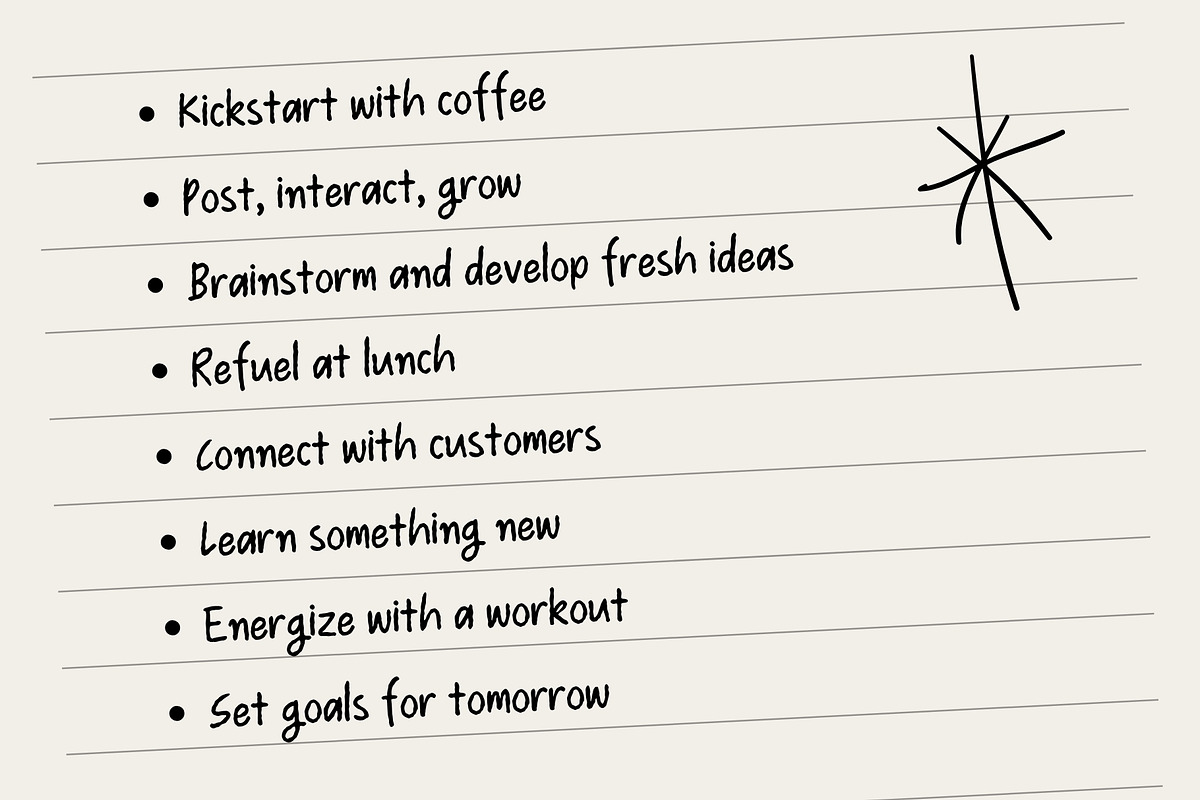 • Kickstart with coffee
• Post, interact, grow
• Brainstorm and develop fresh ideas
• Refuel at lunch
• Connect with customers
• Learn something new
• Energize with a workout
• Set goals for tomorrow